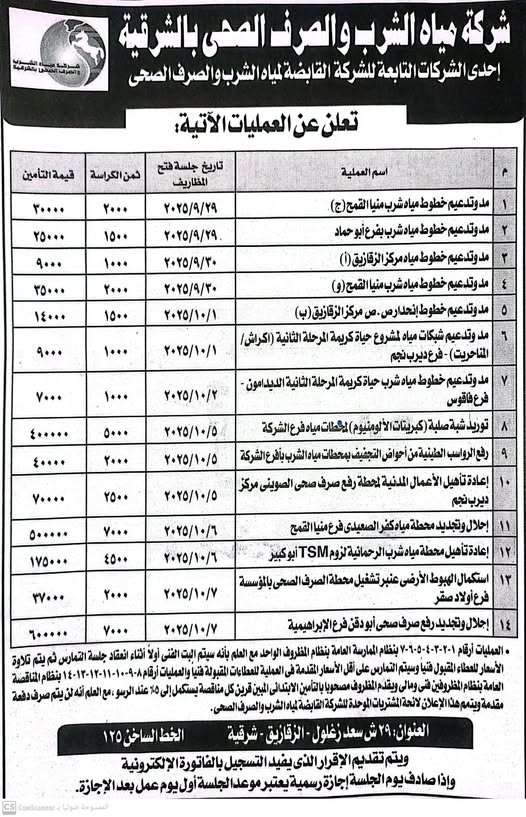 شركة مياه الشرب والصرف الصحى بالشرقية
إحدى الشركات التابعة للشركة القابضة لمياه الشرب والصرف الصحى
شركة مياه الشرب
والصرف الصحى بالشرقية
تعلن عن العمليات الآتية:
م اسم العملية تاريخ جلسة فتح المظاريف ثمن الكراسة قيمة التأمين
١ مد وتدعيم خطوط مياه شرب منيا القمح (ج) ٢٠٢٥/٩/٢٩ ٢٠٠٠ ٣٠٠٠٠
٢ مد وتدعيم خطوط مياه شرب بفرع أبو حماد ٢٠٢٥/٩/٢٩ ١٥٠٠ ٢٥٠٠٠
٣ مد وتدعيم خطوط مياه مركز الزقازيق (أ) ٢٠٢٥/٩/٣٠ ١٠٠٠ ٩٠٠٠
٤ مد وتدعيم خطوط مياه شرب منيا القمح (و) ٢٠٢٥/٩/٣٠ ٢٠٠٠ ٣٥٠٠٠
٥ مد وتدعيم خطوط إنحدار ص.ص مركز الزقازيق (ب) ٢٠٢٥/١٠/١ ١٥٠٠ ١٤٠٠٠
٦ مد وتدعيم شبكات مياه لمشروع حياة كريمة المرحلة الثانية (اكراش/
المناحريت) - فرع ديرب نجم ٢٠٢٥/١٠/١ ١٠٠٠ ٩٠٠٠
٧ مد وتدعيم خطوط مياه شرب حياة كريمة المرحلة الثانية الديدامون -
فرع فاقوس ٢٠٢٥/١٠/٢ ١٠٠٠ ٧٠٠٠
٨ توريد شبة صلبة (كبريتات الألومنيوم) لمحطات مياه فرع الشركة ٢٠٢٥/١٠/٥ ٥٠٠٠ ٤٠٠٠٠٠
٩ رفع الرواسب الطينية من أحواض التجفيف بمحطات مياه الشرب بأفرع الشركة ٢٠٢٥/١٠/٥ ٢٠٠٠ ٤٠٠٠٠
١٠ إعادة تأهيل الأعمال المدنية لمحطة رفع صرف صحى الصوينى مركز
ديرب نجم ٢٠٢٥/١٠/٥ ٢٥٠٠ ٧٠٠٠٠
١١ إحلال وتجديد محطة مياه كفر الصعيدى فرع منيا القمح ٢٠٢٥/١٠/٦ ٧٠٠٠ ٥٠٠٠٠٠
١٢ إعادة تأهيل محطة مياه شرب الرحمانية لزوم TSM أبو كبير ٢٠٢٥/١٠/٦ ٤٥٠٠ ١٧٥٠٠٠
١٣ استكمال الهبوط الأرضى عنبر تشغيل محطة الصرف الصحى بالمؤسسة
فرع أولاد صقر ٢٠٢٥/١٠/٧ ٢٠٠٠ ٣٧٠٠٠
١٤ إحلال وتجديد رفع صرف صحى أبو دقن فرع الإبراهيمية ٢٠٢٥/١٠/٧ ٧٠٠٠ ٦٠٠٠٠٠
• العمليات أرقام ١-٢-٣-٤-٥-٦-٧ بنظام الممارسة العامة بنظام المظروف الواحد مع العلم بأنه سيتم البت الفنى أولاً أثناء انعقاد جلسة التمارس ثم يتم تلاوة
الأسعار للعطاء المقبول فنيا وسيتم التمارس على أقل الأسعار المقدمة فى العملية للعطاءات المقبولة فنيا والعمليات أرقام ٨-٩-١٠-١١-١٢-١٣-١٤ بنظام المناقصة
العامة بنظام المظروفين فنى ومالى ويقدم المظروف مصحوبا بالتأمين الابتدائى المبين قرين كل مناقصة يستكمل إلى ٥٪ عند الرسو، مع العلم أنه لن يتم صرف دفعة
مقدمة ويتمم هذا الإعلان لائحة المشتريات الموحدة للشركة القابضة لمياه الشرب والصرف الصحى.
العنوان: ٢٩ ش سعد زغلول - الزقازيق - شرقية الخط الساخن ١٢٥
ويتم تقديم الإقرار الذى يفيد التسجيل بالفاتورة الإلكترونية
وإذا صادف يوم الجلسة إجازة رسمية يعتبر موعد الجلسة أول يوم عمل بعد الإجازة.
CS CamScanner الممسوحة ضوئيا بـ